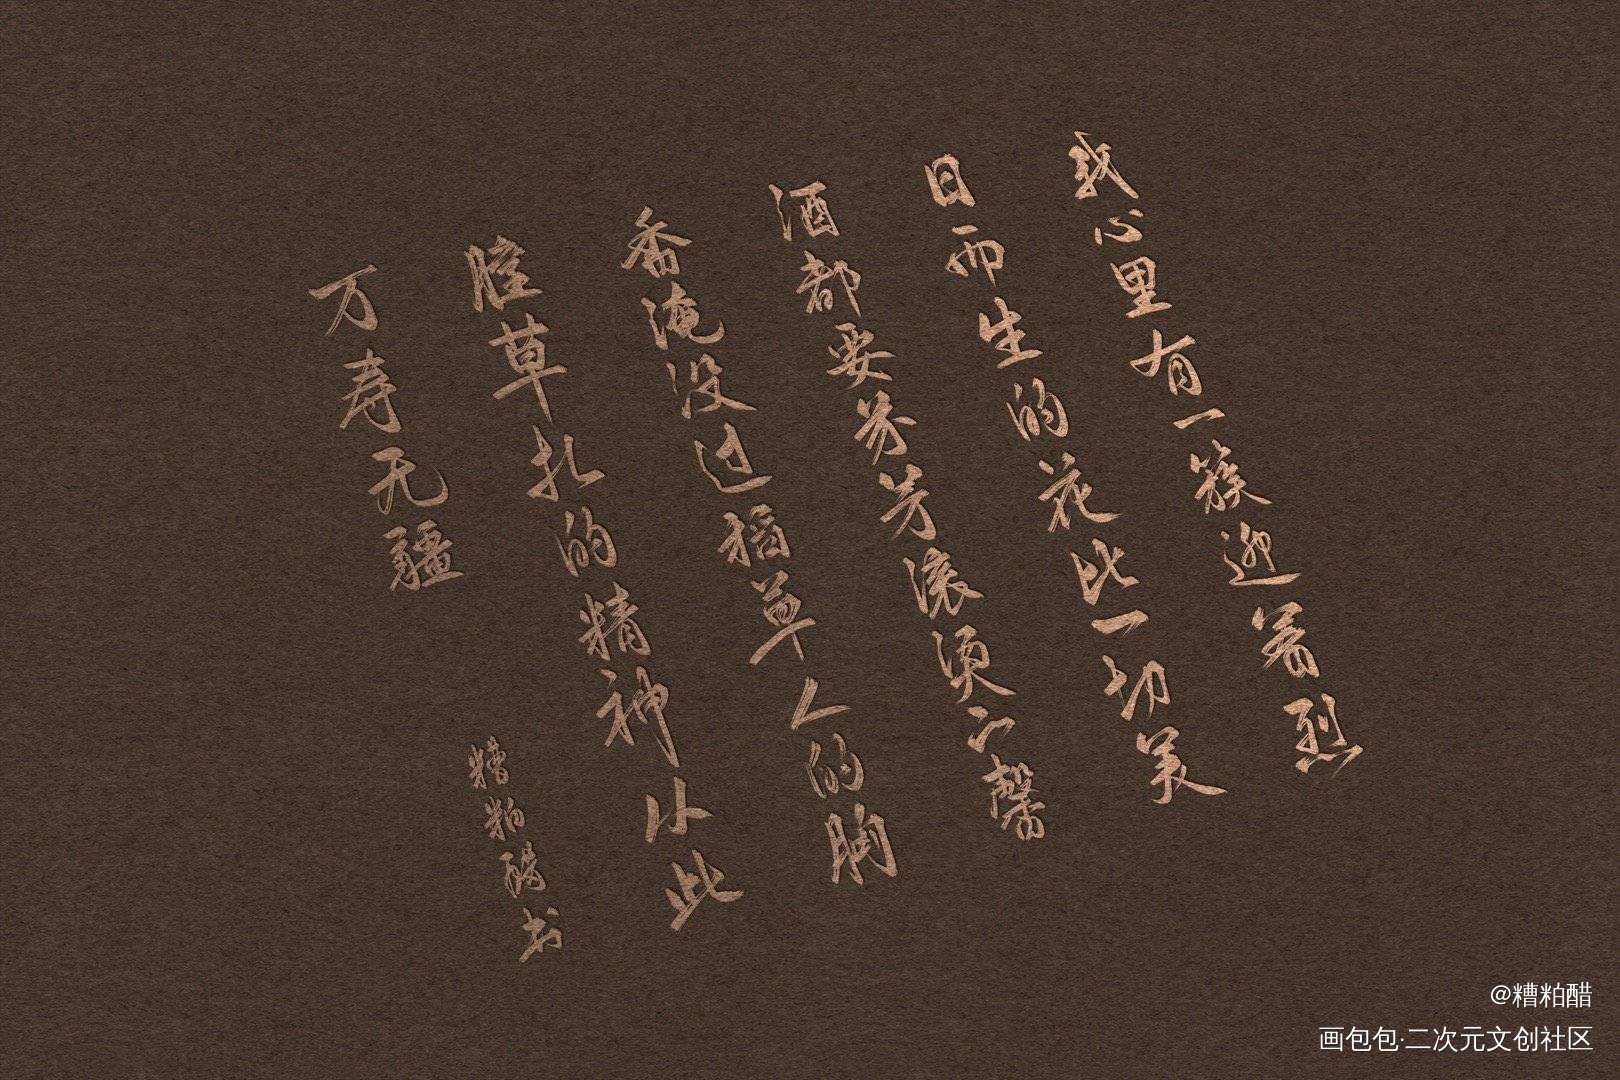 我心里有一簇迎着烈
日而生的花比一切美
酒都要芬芳滚烫的馨
香淹没过稻草人的胸
膛草扎的精神从此
万寿无疆
糟粕醋书
@糟粕醋
画包包·二次元文创社区